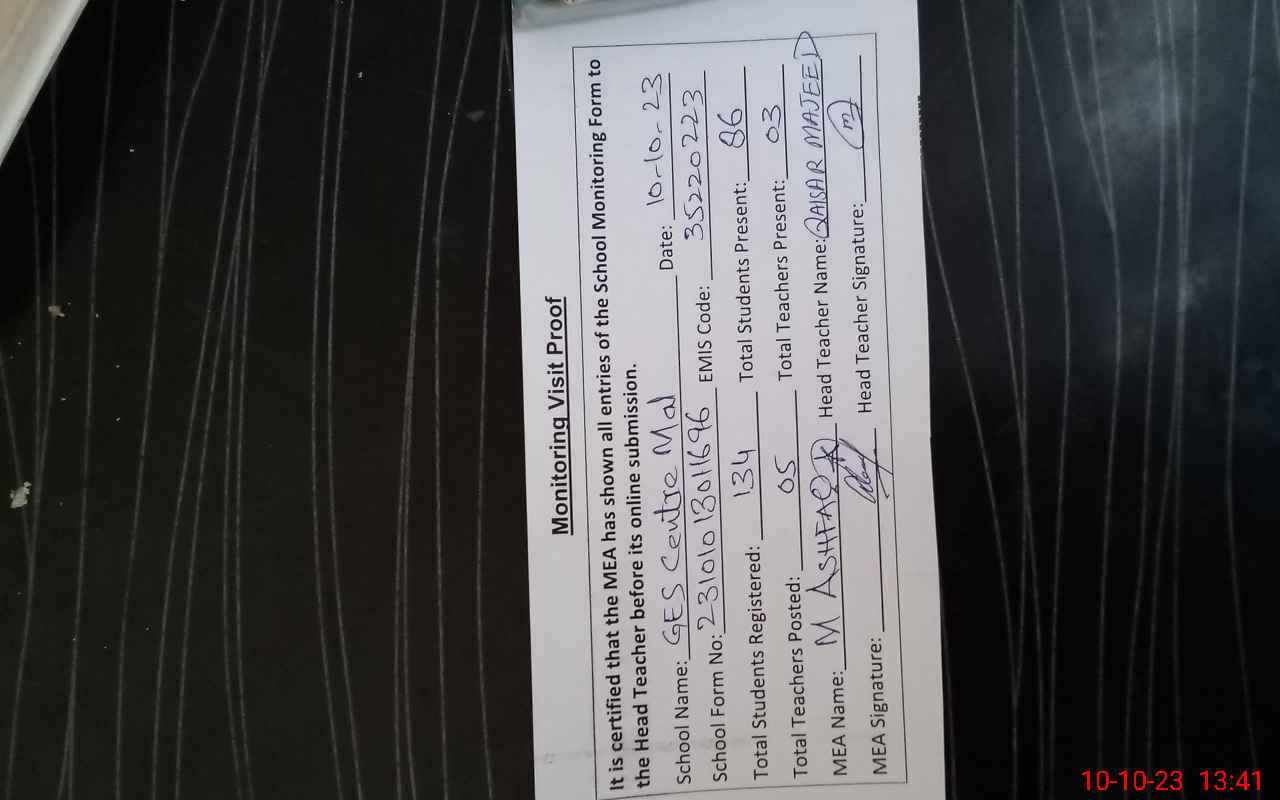 Monitoring Visit Proof
It is certified that the MEA has shown all entries of the School Monitoring Form to
the Head Teacher before its online submission.
School Name: GES Centre Mal Date: 10-10-23
School Form No: 23101013011696 EMIS Code: 35220223
Total Students Registered: 134 Total Students Present: 86
Total Teachers Posted: 05 Total Teachers Present: 03
MEA Name: M ASHFAQ Head Teacher Name: QAISAR MAJEED
MEA Signature: Head Teacher Signature:
10-10-23 13:41